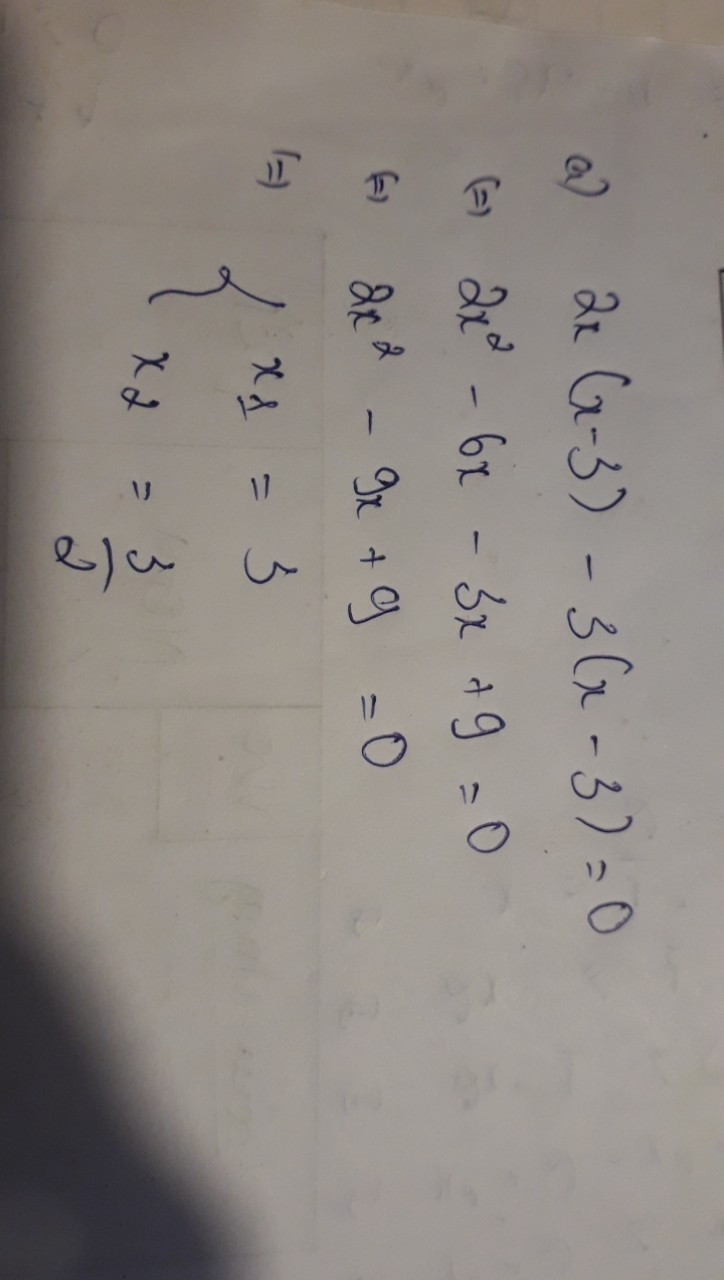 a) 2x (x-3) - 3(x - 3) = 0
(=) 2x² - 6x - 3x + 9 = 0
(=) 2x² - 9x + 9 = 0
(=) { x1 = 3
x2 = 3/2